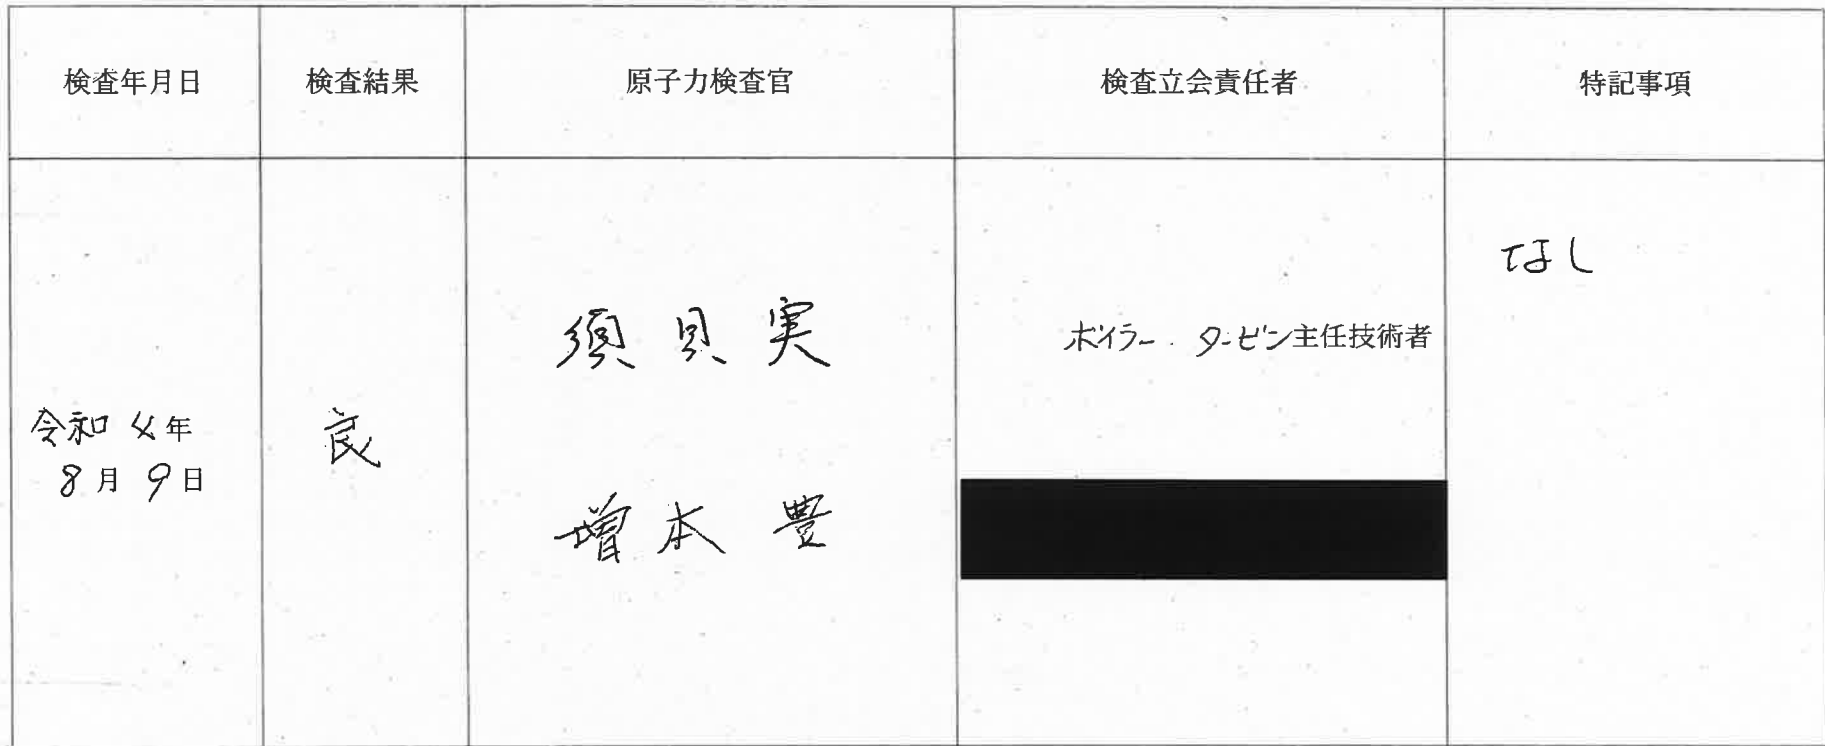 検査年月日
検査結果
原子力検査官
検査立会責任者
特記事項
令和4年
8月9日
良
須貝実
増本豊
ボイラー・タービン主任技術者
なし